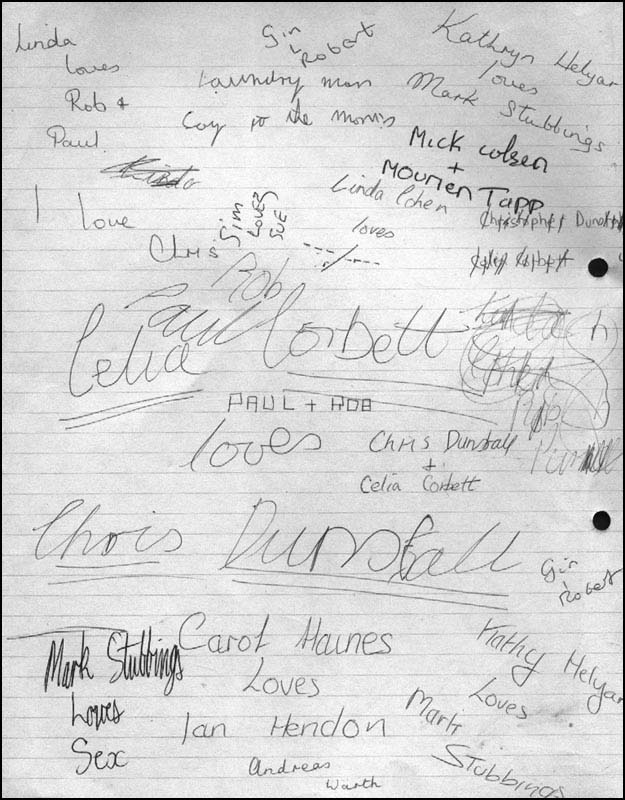 Linda
loves
Rob &
Paul
Gin
Robert
Laundry man
Coy po the morris
Kathryn Helyar
loves
Mark Stubbings
Mick Colsen
+
Mourien Tapp
Linda Cohen
loves
I love
Chris
Sim
LOVES
SUE
Christopher Dunstall
Rob
Paul
Celia Corbett
PAUL + ROB
loves
Chris Dunstall
+
Celia Corbett
Chris Dunstall
Gin
Robert
Mark Stubbings
Loves
Sex
Carol Haines
Loves
Ian Hendon
Andreas
Warth
Kathy Helyar
Loves
Mark
Stubbings